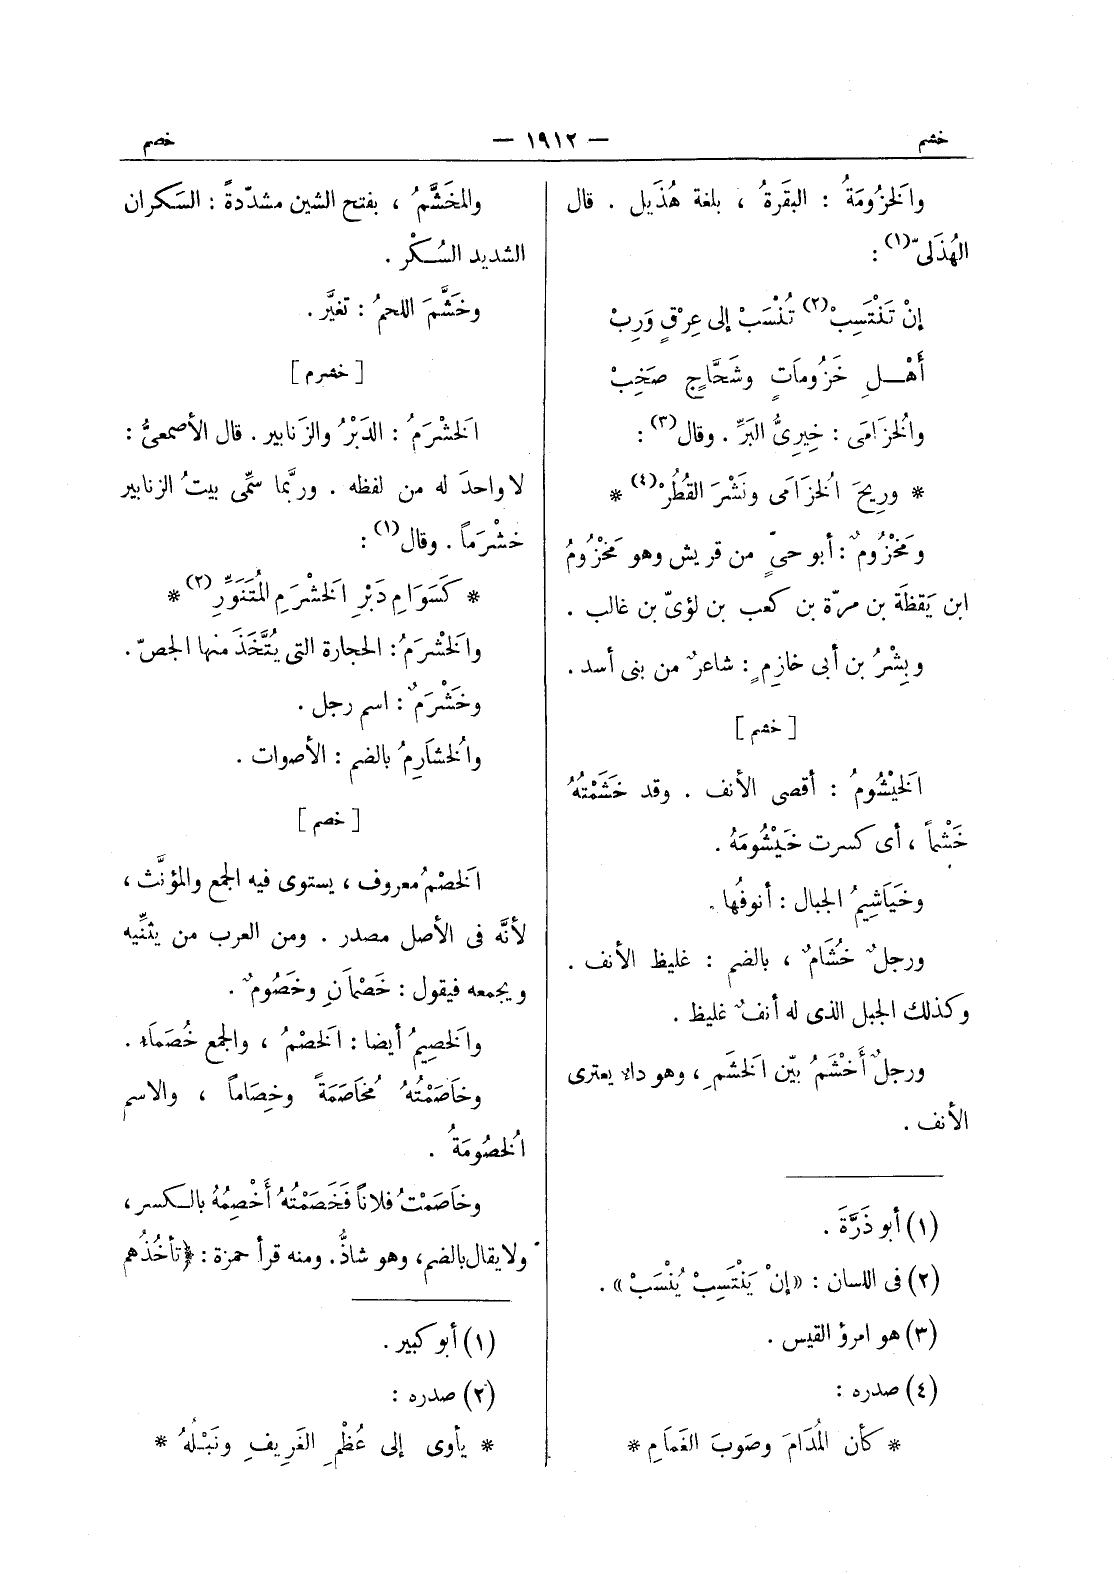 خشم — ١٩١٢ — خصم
والخَزُومَةُ : البقَرةُ ، بلغة هُذَيل . قال
الهُذَلىّ(١) :
إنْ تَنْتَسِبْ(٢) تُنْسَبْ إلى عِرْقٍ وَرِبْ
أَهْـلِ خَزُوماتٍ وشَحَّاجٍ صَخِبْ
والُخزَامَى : خِيرِىُّ البَرِّ . وقال(٣) :
* ورِيحَ الُخزَامَى ونَشْرَ القُطُرْ(٤) *
ومَخْزُومٌ : أبو حىٍّ من قريش وهو مَخْزُومُ
ابن يَقظَة بن مرّة بن كعب بن لؤىّ بن غالب .
وبِشْرُ بن أبى خازِمٍ : شاعرٌ من بنى أسد .
[ خشم ]
الَخيْشُومُ : أقصى الأنف . وقد خَشَمْتُهُ
خَشْماً ، أى كسرت خَيْشُومَهُ .
وخَيَاشِيمُ الجبال : أنوفُها .
ورجلٌ خُشَامٌ ، بالضم : غليظ الأنف .
وكذلك الجبل الذى له أنفٌ غليظ .
ورجلٌ أَخْشَمُ بيّن الَخشَمِ ، وهو داء يعترى
الأنف .
(١) أبو ذَرَّةَ .
(٢) فى اللسان : «إنْ يَنْتَسِبْ يُنْسَبْ» .
(٣) هو امرؤ القيس .
(٤) صدره :
* كأن الُمدَامَ وصَوبَ الغَمَامِ *
والمخَشَّمُ ، بفتح الشين مشدّدةً : السَكران
الشديد السُـكْر .
وخَشَّمَ اللحمُ : تغيَّر .
[ خشرم ]
الَخشْرَمُ : الدَبْرُ والزَنابير . قال الأصمعىُّ :
لا واحدَ له من لفظه . وربَّما سمِّى بيتُ الزنابير
خشْرَماً . وقال(١) :
* كَسَوَامِ دَبْرِ الَخشْرَمِ الُمتَنَوِّرِ(٢) *
والَخشْرَمُ : الحجارة التى يُتَّخَذ منها الجصّ .
وخَشْرَمٌ : اسم رجل .
والُخشَارِمُ بالضم : الأصوات .
[ خصم ]
الَخصْمُ معروف ، يستوى فيه الجمع والمؤنَّث ،
لأنَّه فى الأصل مصدر . ومن العرب من يثنِّيه
ويجمعه فيقول : خَصْمَانِ وخصُومٌ .
والَخصِيمُ أيضا : الَخصْمُ ، والجمع خُصَمَاء .
وخاَصَمْتُهُ مُخاَصَمَةً وخِصاماً ، والاسم
الُخصُومَةُ .
وخاَصَمْتُ فلاناً فَخَصَمْتُهُ أَخْصِمُهُ بالـكسر ،
ولا يقال بالضم ، وهو شاذٌّ . ومنه قرأ حمزة : ﴿تأخُذُهم
(١) أبو كبير .
(٢) صدره :
* يأوى إلى عُظْمِ الغَرِيفِ ونَبْـلُهُ *